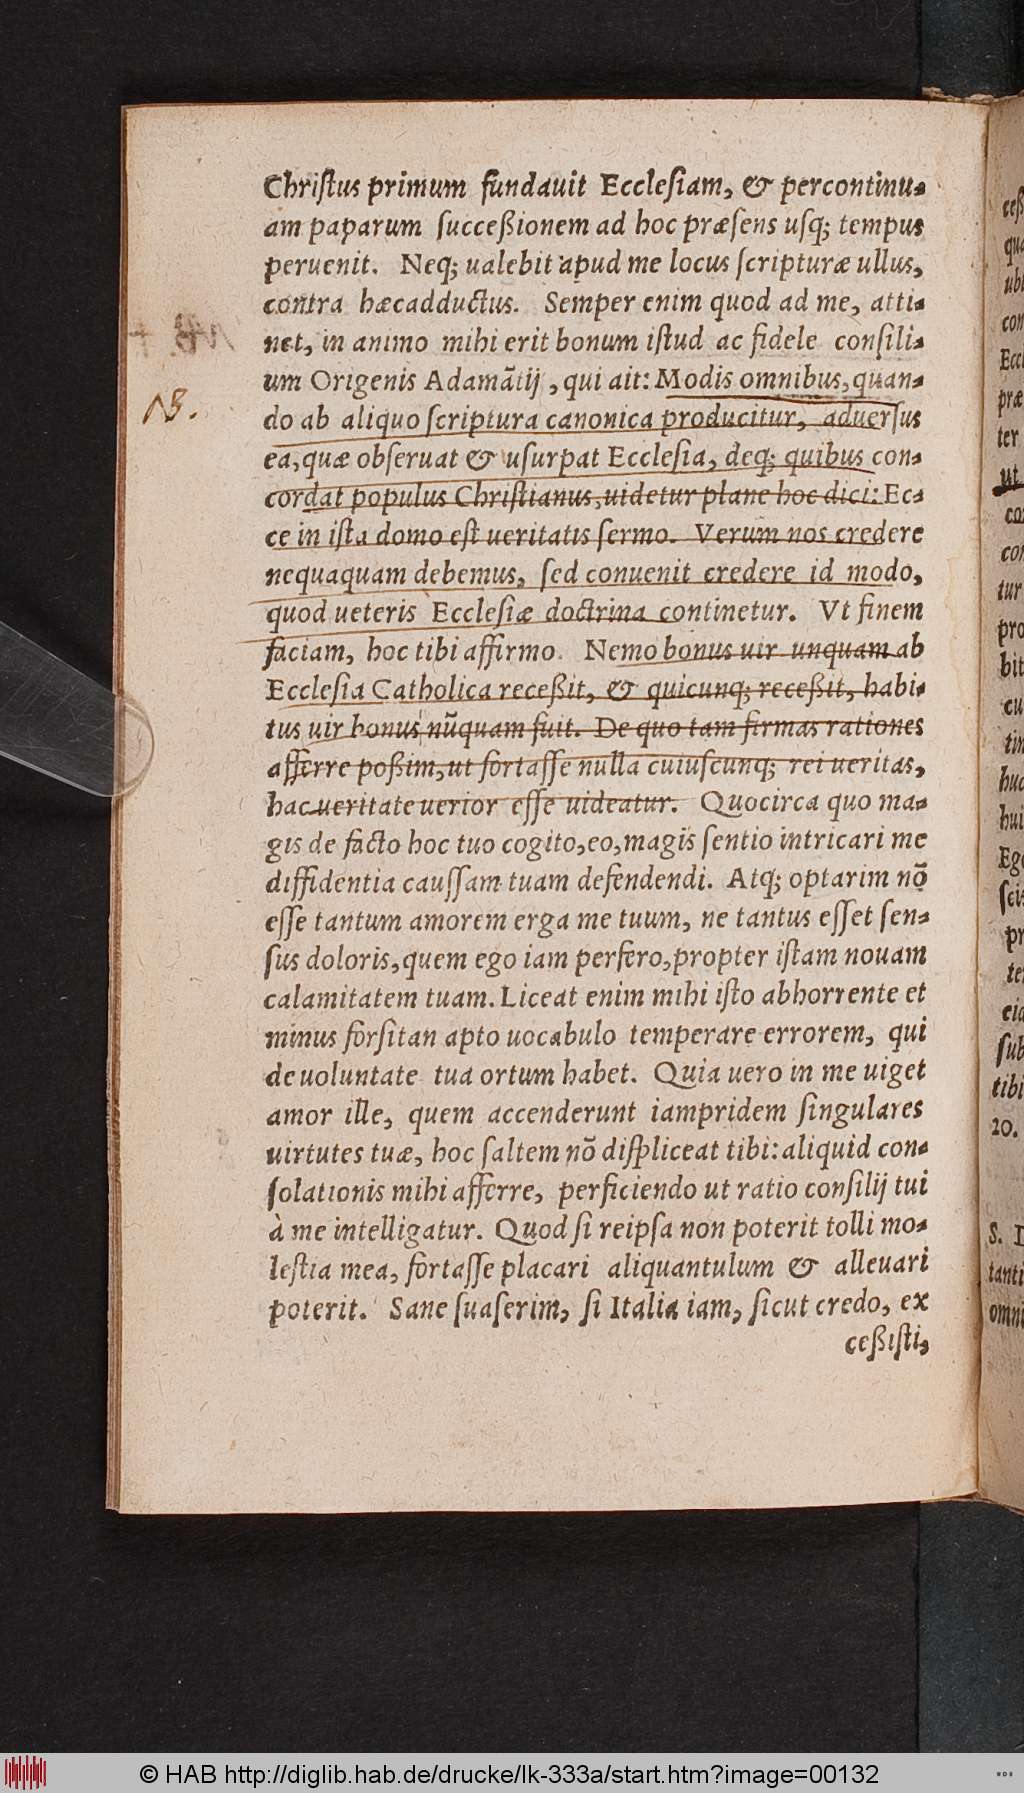 Chriſtus primum fundauit Eccleſiam, & percontinu-
am paparum ſucceßionem ad hoc præſens uſq; tempus
peruenit. Neq; ualebit apud me locus ſcripturæ ullus,
contra hæcadductus. Semper enim quod ad me, atti-
net, in animo mihi erit bonum iſtud ac fidele conſili-
um Origenis Adamãtij, qui ait: Modis omnibus, quan-
NB.
do ab aliquo ſcriptura canonica producitur, aduerſus
ea, quæ obſeruat & uſurpat Eccleſia, deq; quibus con-
cordat populus Chriſtianus, uidetur plane hoc dici: Ec-
ce in iſta domo eſt ueritatis ſermo. Verum nos credere
nequaquam debemus, ſed conuenit credere id modo,
quod ueteris Eccleſiæ doctrina continetur. Vt finem
faciam, hoc tibi affirmo. Nemo bonus uir unquam ab
Eccleſia Catholica receßit, & quicunq; receßit, habi-
tus uir bonus nũquam fuit. De quo tam firmas rationes
afferre poßim, ut fortaſſe nulla cuiuſcunq; rei ueritas,
hac ueritate uerior eſſe uideatur. Quocirca quo ma-
gis de facto hoc tuo cogito, eo, magis ſentio intricari me
diffidentia cauſſam tuam defendendi. Atq; optarim nõ
eſſe tantum amorem erga me tuum, ne tantus eſſet ſen-
ſus doloris, quem ego iam perfero, propter iſtam nouam
calamitatem tuam. Liceat enim mihi iſto abhorrente et
minus forſitan apto uocabulo temperare errorem, qui
de uoluntate tua ortum habet. Quia uero in me uiget
amor ille, quem accenderunt iampridem ſingulares
uirtutes tuæ, hoc ſaltem nõ diſpliceat tibi: aliquid con-
ſolationis mihi afferre, perficiendo ut ratio conſilij tui
à me intelligatur. Quod ſi reipſa non poterit tolli mo-
leſtia mea, fortaſſe placari aliquantulum & alleuari
poterit. Sane ſuaſerim, ſi Italia iam, ſicut credo, ex
ceßiſti,
© HAB http://diglib.hab.de/drucke/lk-333a/start.htm?image=00132